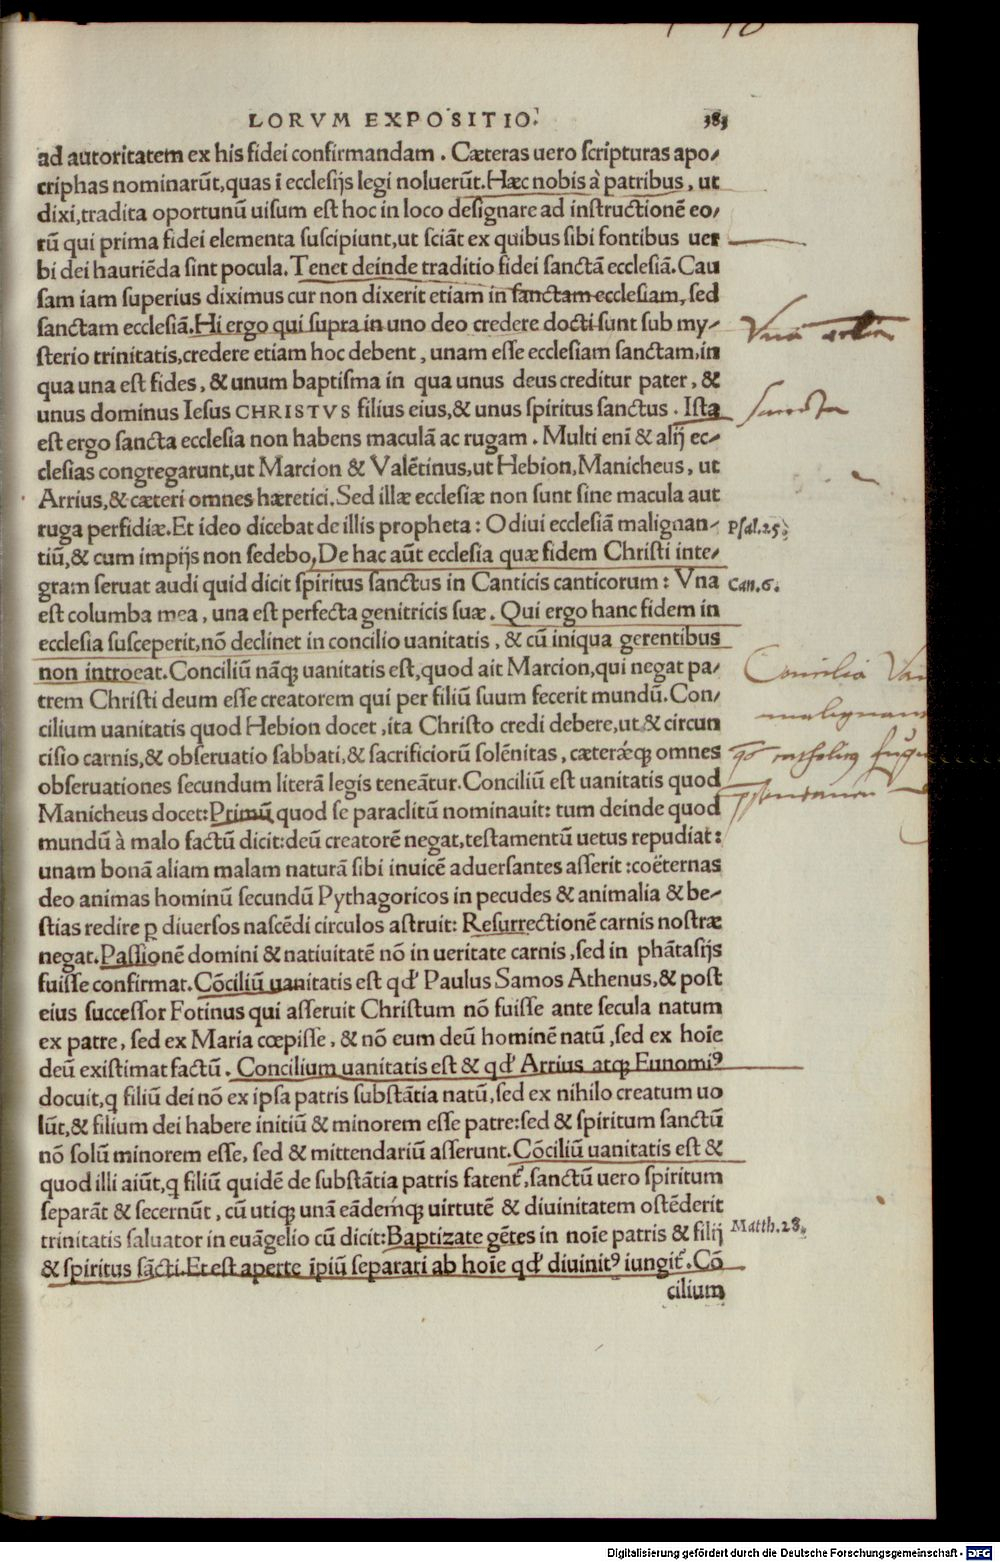 LORVM EXPOSITIO. 383
ad autoritatem ex his fidei confirmandam . Cæteras uero scripturas apo⸗
criphas nominarūt,quas ī ecclesijs legi noluerūt.Hæc nobis à patribus , ut
dixi,tradita oportunū uisum est hoc in loco designare ad instructionē eo⸗
rū qui prima fidei elementa suscipiunt,ut sciāt ex quibus sibi fontibus uer
bi dei hauriēda sint pocula.Tenet deinde traditio fidei sanctā ecclesiā.Cau
sam iam superius diximus cur non dixerit etiam in sanctam ecclesiam, sed
sanctam ecclesiā.Hi ergo qui supra in uno deo credere docti sunt sub my⸗
sterio trinitatis,credere etiam hoc debent , unam esse ecclesiam sanctam,in
qua una est fides , & unum baptisma in qua unus deus creditur pater , &
unus dominus Iesus CHRISTVS filius eius,& unus spiritus sanctus . Ista
est ergo sancta ecclesia non habens maculā ac rugam . Multi enī & alij ec⸗
clesias congregarunt,ut Marcion & Valētinus,ut Hebion,Manicheus , ut
Arrius,& cæteri omnes hæretici.Sed illæ ecclesiæ non sunt sine macula aut
ruga perfidiæ.Et ideo dicebat de illis propheta : Odiui ecclesiā malignan⸗ Psal.25.
tiū,& cum impijs non sedebo,De hac aūt ecclesia quæ fidem Christi inte⸗
gram seruat audi quid dicit spiritus sanctus in Canticis canticorum : Vna Can.6.
est columba mea , una est perfecta genitricis suæ . Qui ergo hanc fidem in
ecclesia susceperit,nō declinet in concilio uanitatis , & cū iniqua gerentibus
non introeat.Conciliū nāq; uanitatis est,quod ait Marcion,qui negat pa⸗
trem Christi deum esse creatorem qui per filiū suum fecerit mundū.Con⸗
cilium uanitatis quod Hebion docet ,ita Christo credi debere,ut & circun
cisio carnis,& obseruatio sabbati,& sacrificiorū solēnitas , cæteræq; omnes
obseruationes secundum literā legis teneātur.Conciliū est uanitatis quod
Manicheus docet:Primū quod se paraclitū nominauit: tum deinde quod
mundū à malo factū dicit:deū creatorē negat,testamentū uetus repudiat :
unam bonā aliam malam naturā sibi inuicē aduersantes asserit :coëternas
deo animas hominū secundū Pythagoricos in pecudes & animalia & be⸗
stias redire ꝑ diuersos nascēdi circulos astruit: Resurrectionē carnis nostræ
negat.Passionē domini & natiuitatē nō in ueritate carnis ,sed in phātasijs
fuisse confirmat.Cōciliū uanitatis est qđ Paulus Samos Athenus,& post
eius successor Fotinus qui asseruit Christum nō fuisse ante secula natum
ex patre , sed ex Maria cœpisse , & nō eum deū hominē natū ,sed ex hoīe
deū existimat factū . Concilium uanitatis est & qđ Arrius atq; Eunomiꝰ
docuit,q filiū dei nō ex ipsa patris substātia natū,sed ex nihilo creatum uo
lūt,& filium dei habere initiū & minorem esse patre:sed & spiritum sanctū
nō solū minorem esse, sed & mittendariū asserunt.Cōciliū uanitatis est &
quod illi aiūt,q filiū quidē de substātia patris fatent᷑,sanctū uero spiritum
separāt & secernūt , cū utiq; unā eādemq; uirtutē & diuinitatem ostēderit
trinitatis saluator in euāgelio cū dicit:Baptizate gētes in noīe patris & filij Matth.28.
& spiritus sācti.Et est aperte īpiū separari ab hoīe qđ diuinitꝰ iungit᷑.Cō
cilium
Sancta
Concilia
Digitalisierung gefördert durch die Deutsche Forschungsgemeinschaft - DFG